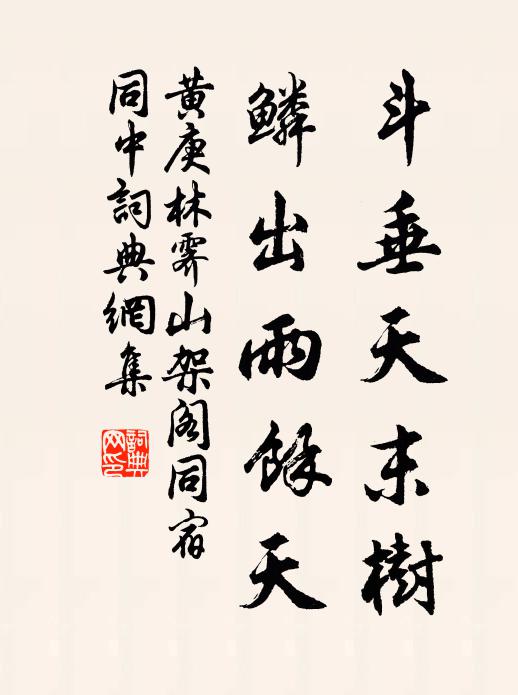 斗垂天末樹
鱗出雨餘天
黃庚林霽山架閣同宿
同中詞典網集
詞典網印